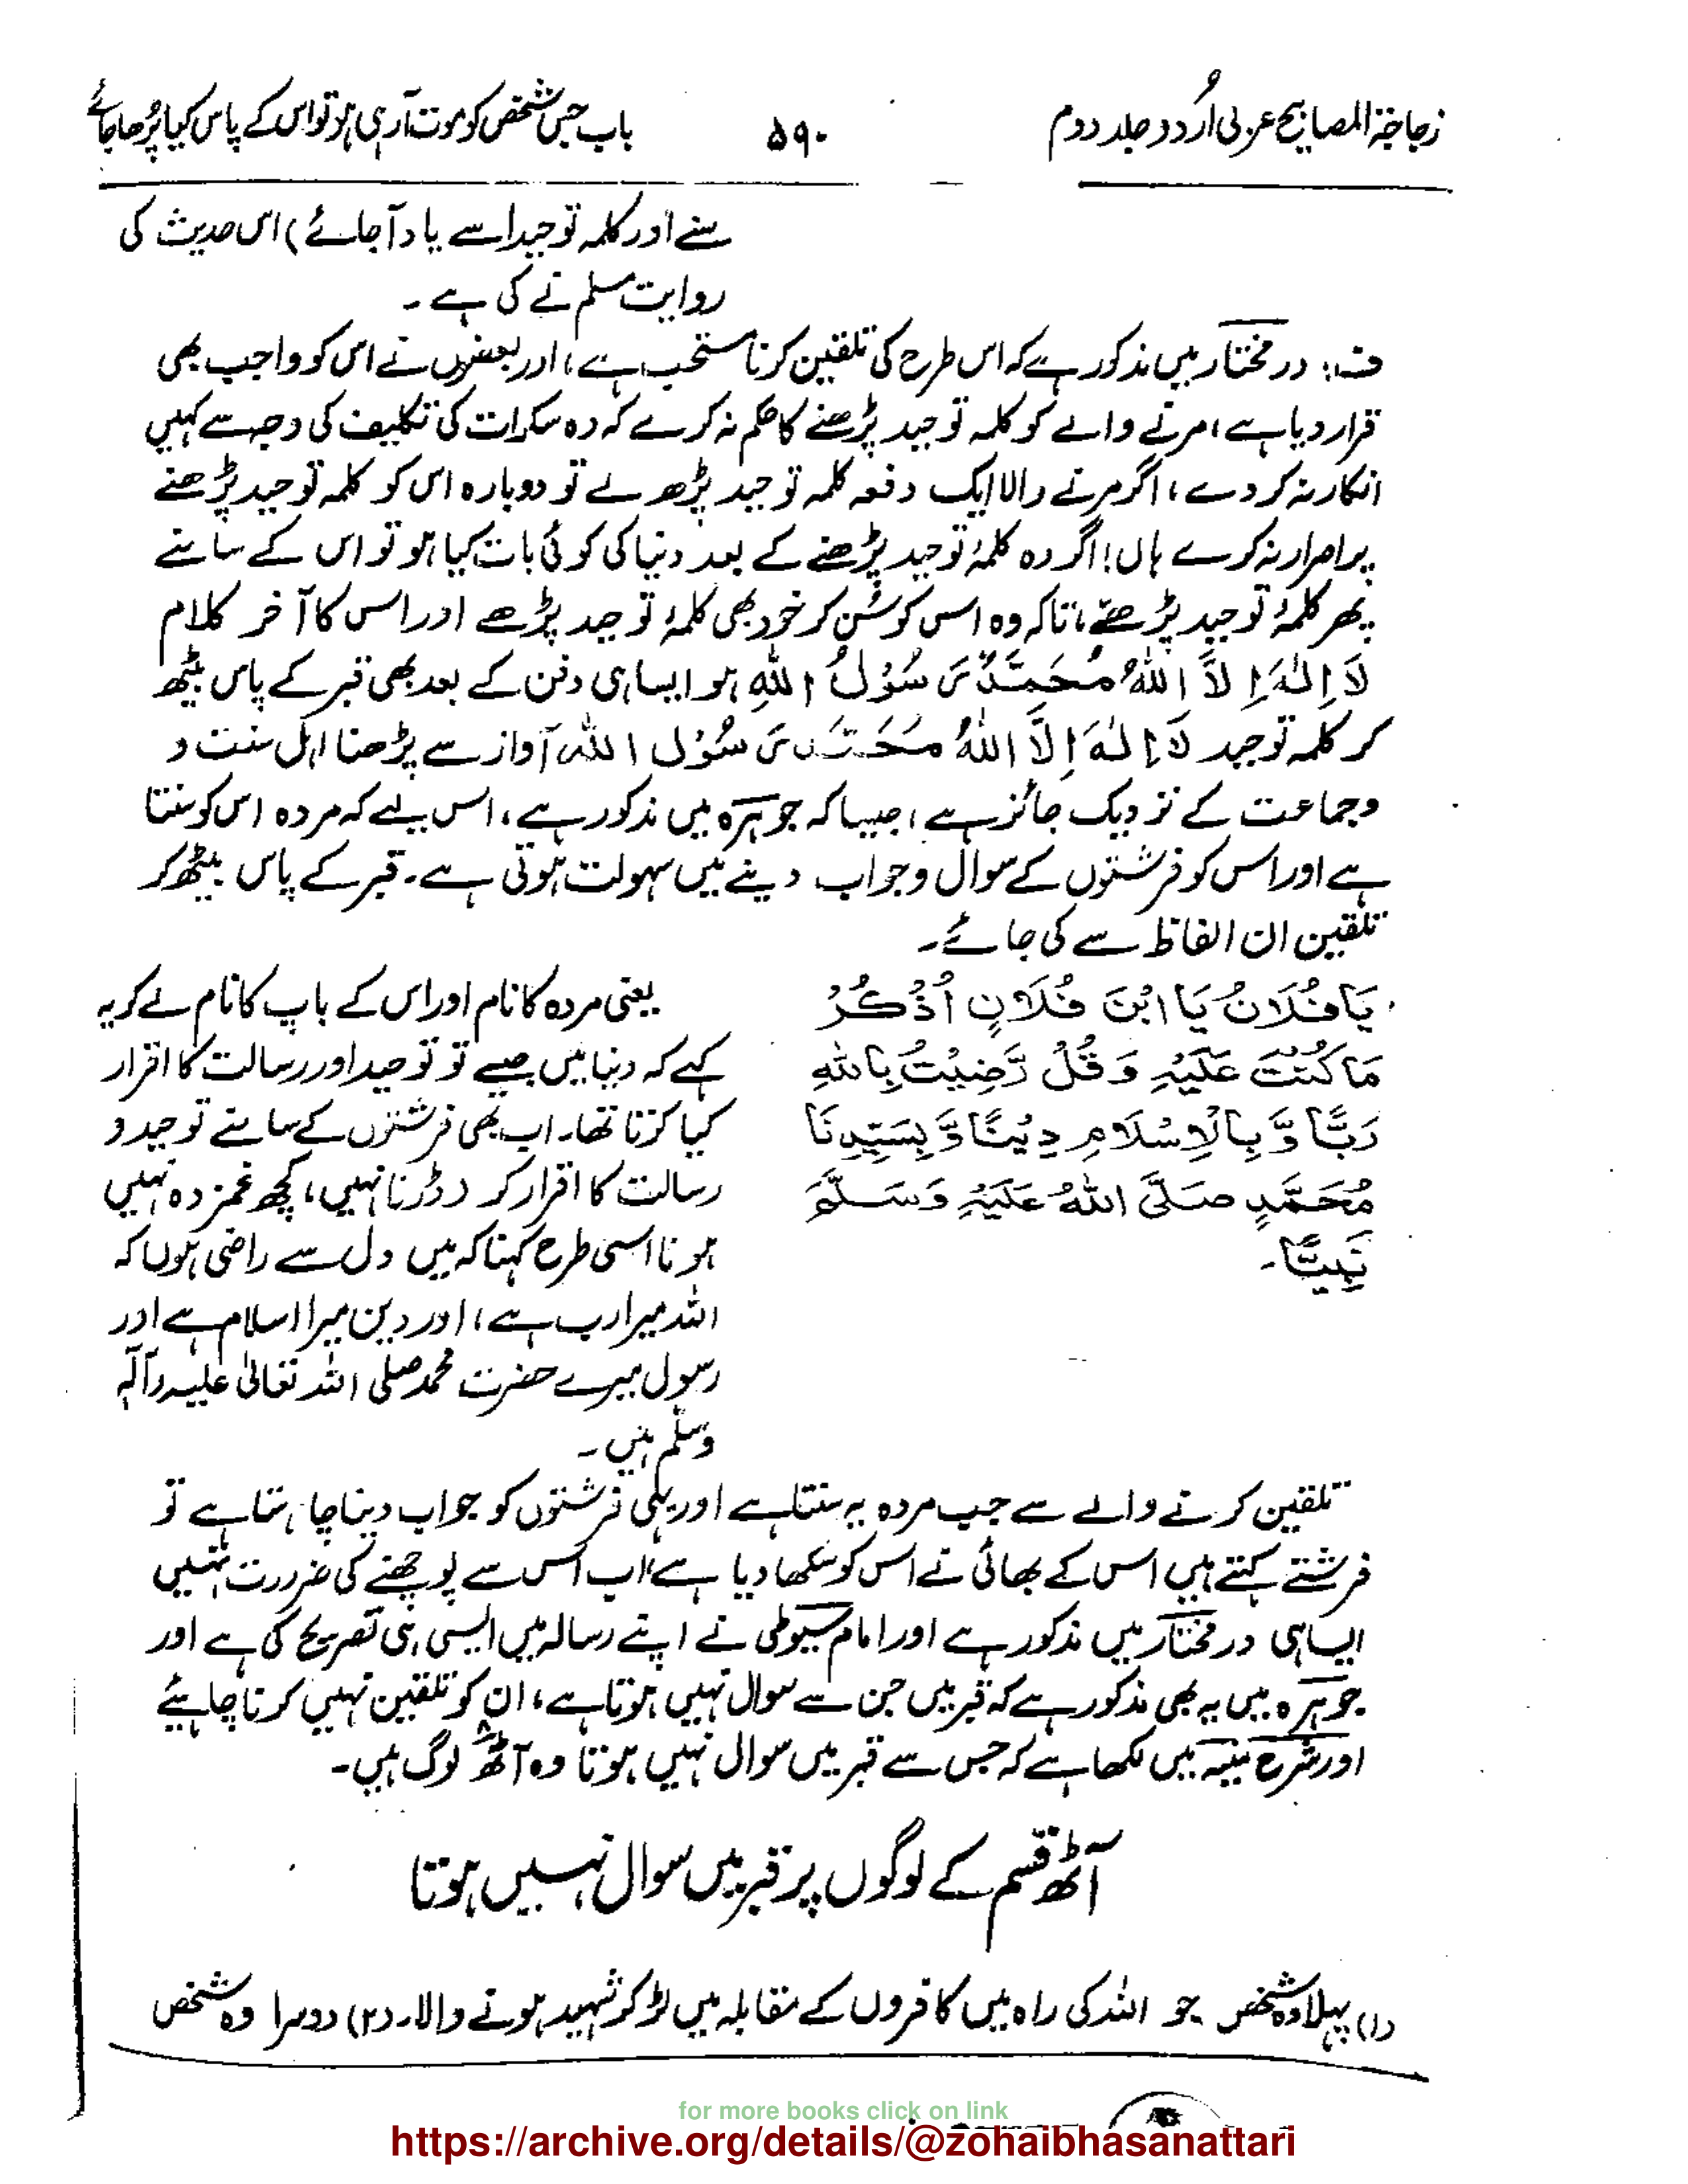 زجاجۃ المصابیح عربی اُردو جلد دوم
۵۹۰
باب جس شخص کو موت آرہی ہو تو اس کے پاس کیا پڑھا جائے
سنے اور کلمہ توحید اسے یاد آجائے) اس حدیث کی
روایت مسلم نے کی ہے۔
ف: در مختار میں مذکور ہے کہ اس طرح کی تلقین کرنا مستحب ہے، اور بعضوں نے اس کو واجب بھی
قرار دیا ہے، مرنے والے کو کلمہ توحید پڑھنے کا حکم نہ کرے کہ وہ سکرات کی تکلیف کی وجہ سے کہیں
انکار نہ کر دے، اگر مرنے والا ایک دفعہ کلمہ توحید پڑھ لے تو دوبارہ اس کو کلمہ توحید پڑھنے
پر اصرار نہ کرے ہاں! اگر وہ کلمۂ توحید پڑھنے کے بعد دنیا کی کوئی بات کیا ہو تو اس کے سامنے
پھر کلمۂ توحید پڑھے، تاکہ وہ اس کو سُن کر خود بھی کلمۂ توحید پڑھے اور اس کا آخر کلام
لَا اِلٰہَ اِلَّا اللّٰہُ مُحَمَّدٌ رَّسُوْلُ اللّٰہِ ہو ایسا ہی دفن کے بعد بھی قبر کے پاس بیٹھ
کر کلمہ توحید لَا اِلٰہَ اِلَّا اللّٰہُ مُحَمَّد رَّسُوْل اللّٰہ آواز سے پڑھنا اہل سنت و
وجماعت کے نزدیک جائز ہے، جیسا کہ جوہرہ میں مذکور ہے، اس لیے کہ مردہ اس کو سنتا
ہے اور اس کو فرشتوں کے سوال و جواب دینے میں سہولت ہوتی ہے۔ قبر کے پاس بیٹھ کر
تلقین ان الفاظ سے کی جائے۔
یَا فُلَانُ یَا ابْنَ فُلَانٍ اُذْکُرْ
مَا کُنْتَ عَلَیْہِ وَ قُلْ رَّضِیْتُ بِاللّٰہِ
رَبًّا وَّ بِالْاِسْلَامِ دِیْنًا وَّ بِسَیِّدِنَا
مُحَمَّدٍ صَلَّی اللّٰہُ عَلَیْہِ وَسَلَّمَ
نَبِیًّا۔
یعنی مردہ کا نام اور اس کے باپ کا نام لے کر یہ
کہے کہ دنیا میں جیسے تو توحید اور رسالت کا اقرار
کیا کرتا تھا۔ اب بھی فرشتوں کے سامنے توحید و
رسالت کا اقرار کر ڈرنا نہیں، کچھ غمزدہ نہیں
ہونا اسی طرح کہنا کہ میں دل سے راضی ہوں کہ
اللہ میرا رب ہے، اور دین میرا اسلام ہے اور
رسول میرے حضرت محمد صلی اللہ تعالیٰ علیہ وآلہ
وسلم ہیں۔
تلقین کرنے والے سے جب مردہ یہ سنتا ہے اور یہی فرشتوں کو جواب دینا چاہتا ہے تو
فرشتے کہتے ہیں اس کے بھائی نے اس کو سکھا دیا ہے اب اس سے پوچھنے کی ضرورت نہیں
ایسا ہی در مختار میں مذکور ہے اور امام سیوطی نے اپنے رسالہ میں ایسی ہی تصریح کی ہے اور
جوہرہ میں یہ بھی مذکور ہے کہ قبر میں جن سے سوال نہیں ہوتا ہے، ان کو تلقین نہیں کرنا چاہیئے
اور شرح میں لکھا ہے کہ جس سے قبر میں سوال نہیں ہوتا وہ آٹھ۸ لوگ ہیں۔
آٹھ قسم کے لوگوں پر قبر میں سوال نہیں ہوتا
(۱) پہلا وہ شخص جو اللہ کی راہ میں کافروں کے مقابلہ میں لڑ کر شہید ہونے والا۔ (۲) دوسرا وہ شخص
for more books click on link
https://archive.org/details/@zohaibhasanattari